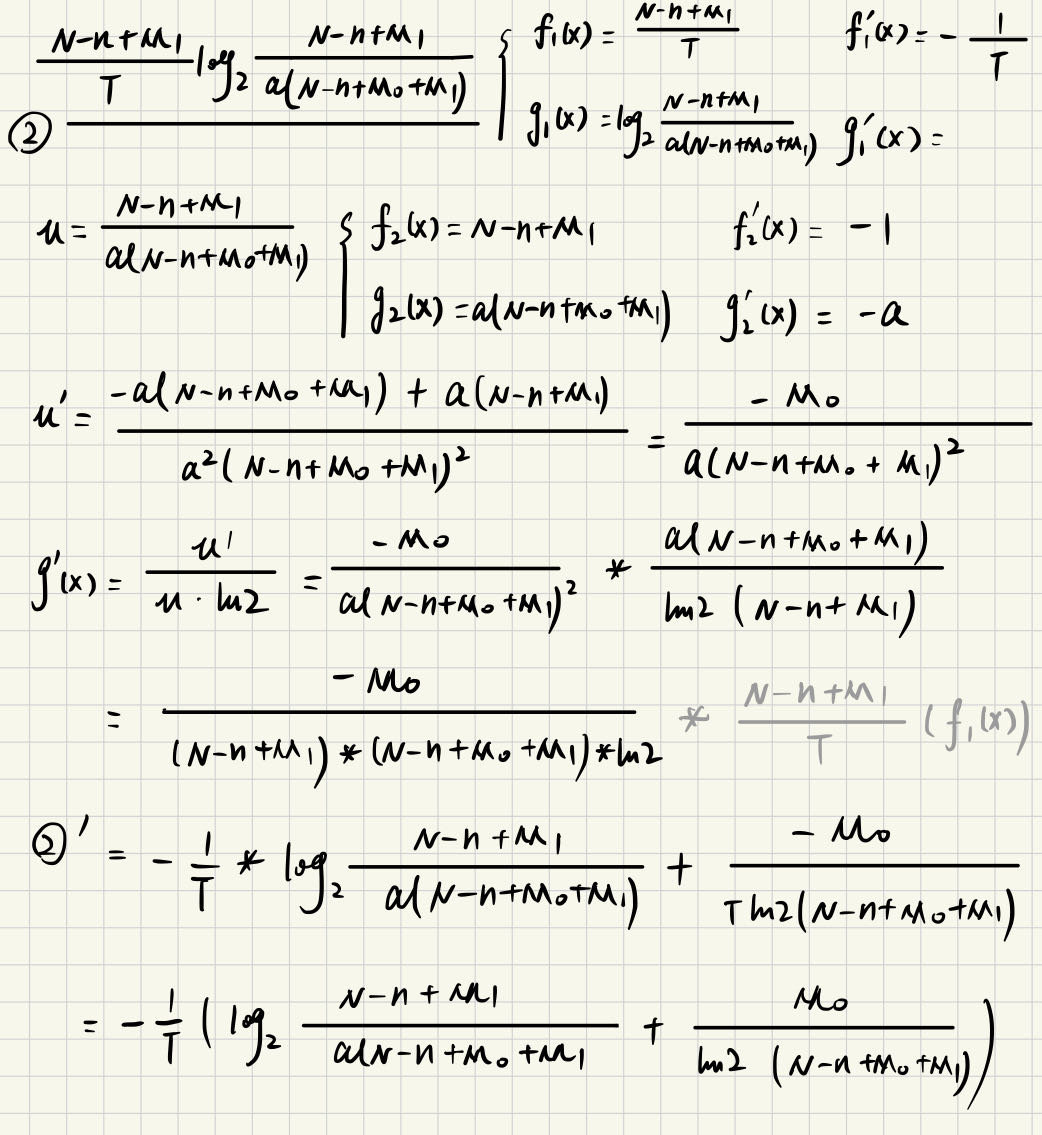 ② \frac{N-n+M_1}{T} \log_2 \frac{N-n+M_1}{a(N-n+M_0+M_1)} { f_1(x) = \frac{N-n+M_1}{T} f_1'(x) = -\frac{1}{T}
g_1(x) = \log_2 \frac{N-n+M_1}{a(N-n+M_0+M_1)} g_1'(x) =
u = \frac{N-n+M_1}{a(N-n+M_0+M_1)} { f_2(x) = N-n+M_1 f_2'(x) = -1
g_2(x) = a(N-n+M_0+M_1) g_2'(x) = -a
u' = \frac{-a(N-n+M_0+M_1) + a(N-n+M_1)}{a^2(N-n+M_0+M_1)^2} = \frac{-M_0}{a(N-n+M_0+M_1)^2}
g'(x) = \frac{u'}{u \cdot \ln2} = \frac{-M_0}{a(N-n+M_0+M_1)^2} * \frac{a(N-n+M_0+M_1)}{\ln2 (N-n+M_1)}
= \frac{-M_0}{(N-n+M_1)*(N-n+M_0+M_1)*\ln2} * \frac{N-n+M_1}{T} (f_1(x))
②' = -\frac{1}{T} * \log_2 \frac{N-n+M_1}{a(N-n+M_0+M_1)} + \frac{-M_0}{T\ln2(N-n+M_0+M_1)}
= -\frac{1}{T} ( \log_2 \frac{N-n+M_1}{a(N-n+M_0+M_1} + \frac{M_0}{\ln2 (N-n+M_0+M_1)} )